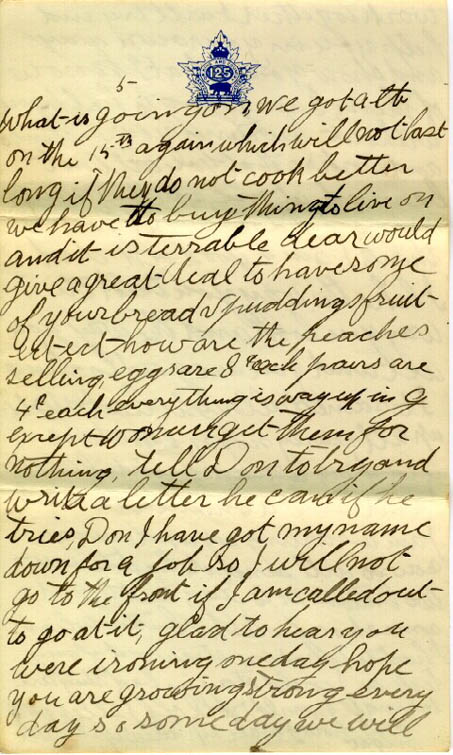 125
5
what is going on, we got a tb
on the 15th again which will not last
long if they do not cook better
we have to buy things to live on
and it is terrable dear would
give a great deal to have some
of your bread & puddings fruit
ect ect how are the peaches
selling, eggs are 8c each pairs are
4c each everything is way up in G
except women get them for
nothing, tell Don to try and
write a letter he can if he
tries, Don I have got my name
down for a job so I will not
go to the front if I am called out
to go at it, glad to hear you
were ironing one day hope
you are growing strong every
day so some day we will